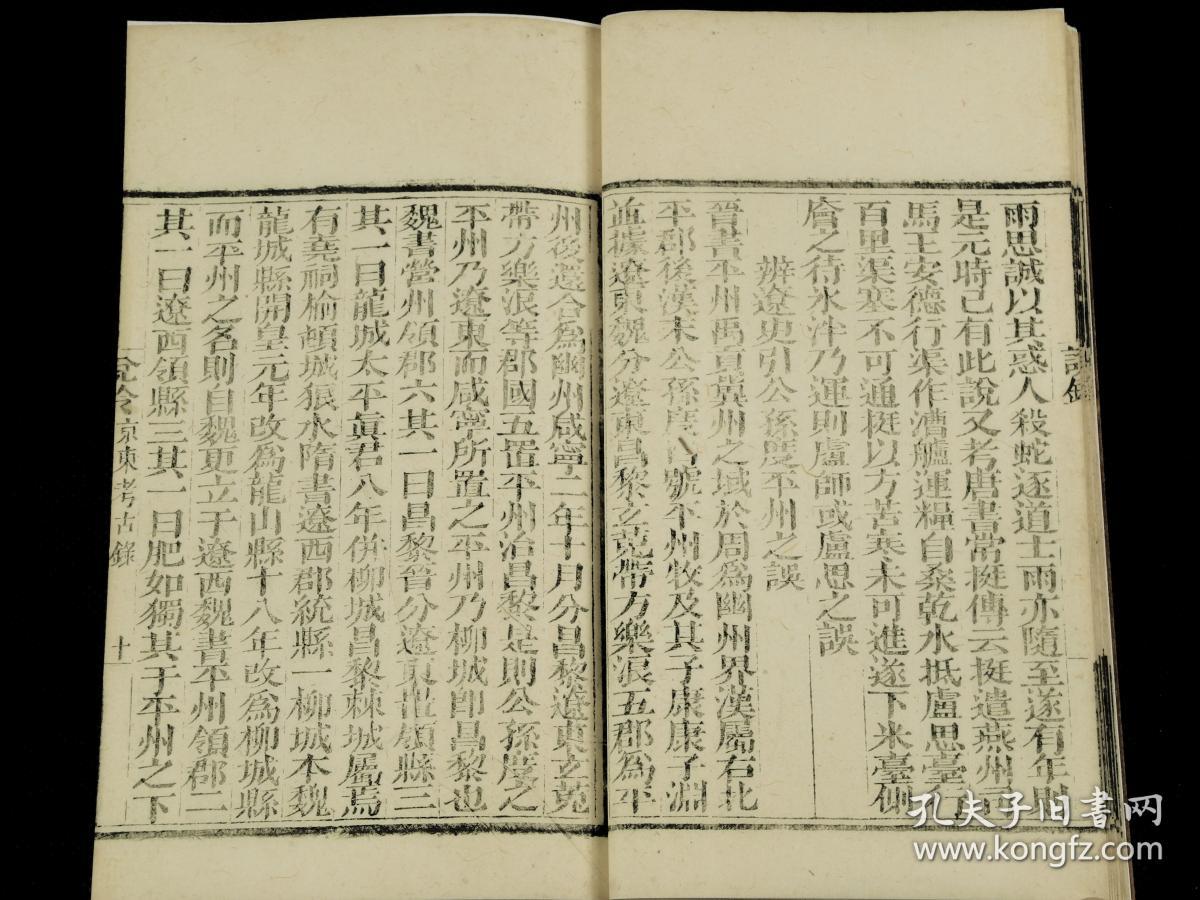 雨思誠以其惑人殺蛇逐道士雨亦隨至遂有年則
是元時已有此說又考唐書常挺傳云挺遣燕州司
馬王安德行渠作漕艫運糧自桑乾水抵盧思臺行
百里渠塞不可通挺以方苦寒未可進遂下米臺側
廥之待氷泮乃運則盧師或盧思之誤
辨遼史引公孫度平州之誤
晉書平州禹貢冀州之域於周為幽州界漢屬右北
平郡後漢末公孫度自號平州牧及其子康康子淵
並據遼東魏分遼東昌黎玄菟帶方樂浪五郡為平
州後還合為幽州咸寧二年十月分昌黎遼東玄菟
帶方樂浪等郡國五置平州治昌黎是則公孫度之
平州乃遼東而咸寧所置之平州乃柳城即昌黎也
魏書營州領郡六其一曰昌黎晉分遼東置領縣三
其一曰龍城太平真君八年併柳城昌黎棘城屬焉
有堯祠榆頓城狼水隋書遼西郡統縣一柳城本魏
龍城縣開皇元年改為龍山縣十八年改為柳城縣
而平州之名則自魏更立于遼西魏書平州領郡二
其一曰遼西領縣三其一曰肥如獨其于平州之下
說鈴 京東考古錄 十
孔夫子旧书网
www.kongfz.com